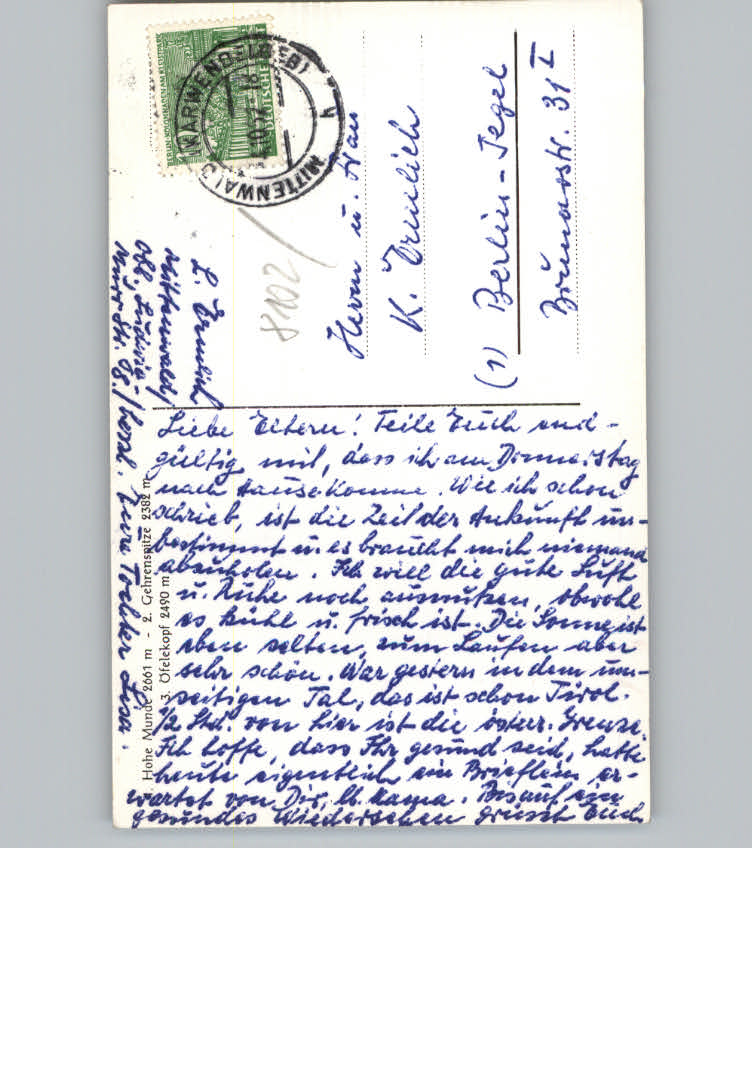 MITTENWALD
(KARWENDELGEB)
Herrn u. Frau
K.
(1) Berlin-Tegel
Brunowstr. 31 I
8102
L.
Mittenwald/
Obb., Ludwig-
Liebe Eltern! Teile Euch end-
gültig mit, dass ich am Donnerstag
nach Hause komme. Wie ich schon
schrieb, ist die Zeit der Ankunft un-
bestimmt u. es braucht mich niemand
abzuholen. Ich will die gute Luft
u. Ruhe noch ausnutzen, obwohl
es kühl u. frisch ist. Die Sonne ist
eben selten, zum Laufen aber
sehr schön. War gestern in dem
seitigen Tal, das ist schon Tirol.
1/2 Std. von hier ist die österr. Grenze.
Ich hoffe, dass Ihr gesund seid, hatte
heute eigentlich ein Brieflein er-
wartet von Dir, lb. Mama. Bis auf ein
gesundes Wiedersehen grüsst Euch
herzl. Eure Tochter
Hohe Munde 2661 m - 2. Gehrenspitze 2382 m
3. Öfelekopf 2490 m